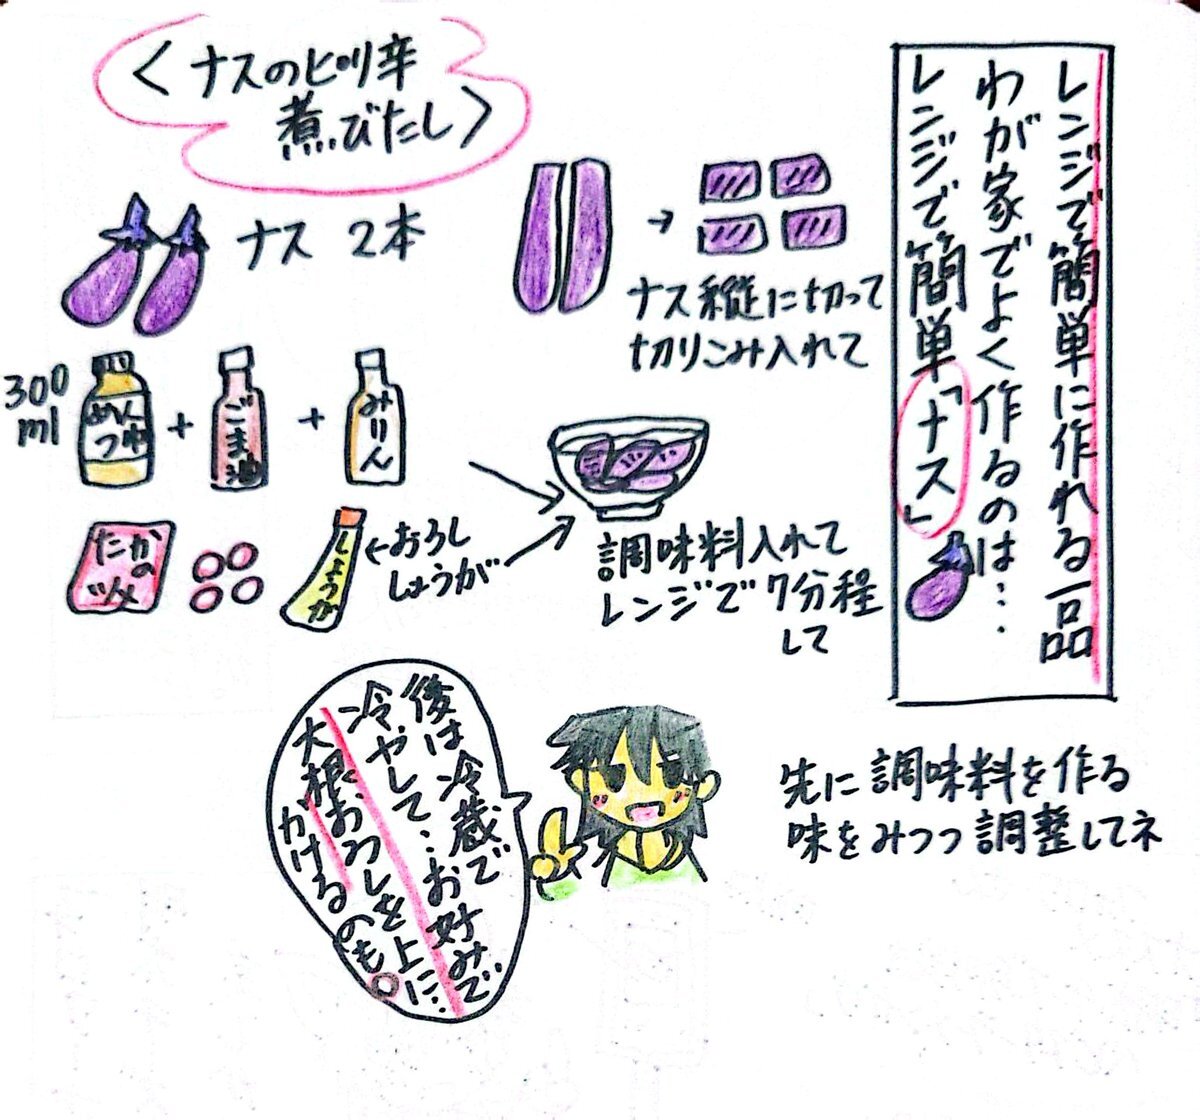 レンジで簡単に作れる一品
わが家でよく作るのは…
レンジで簡単「ナス」
<ナスのピリ辛
煮びたし>
ナス 2本
ナス縦に切って
切りこみ入れて
300
ml
めん
つゆ
+
ごま油
+
みりん
たかの
ツメ
しょうが
←おろし
しょうが
調味料入れて
レンジで7分程
して
先に調味料を作る
味をみつつ調整してネ
後は冷蔵で
冷やして…お好みで
大根おろしを上に…
かけるのも○